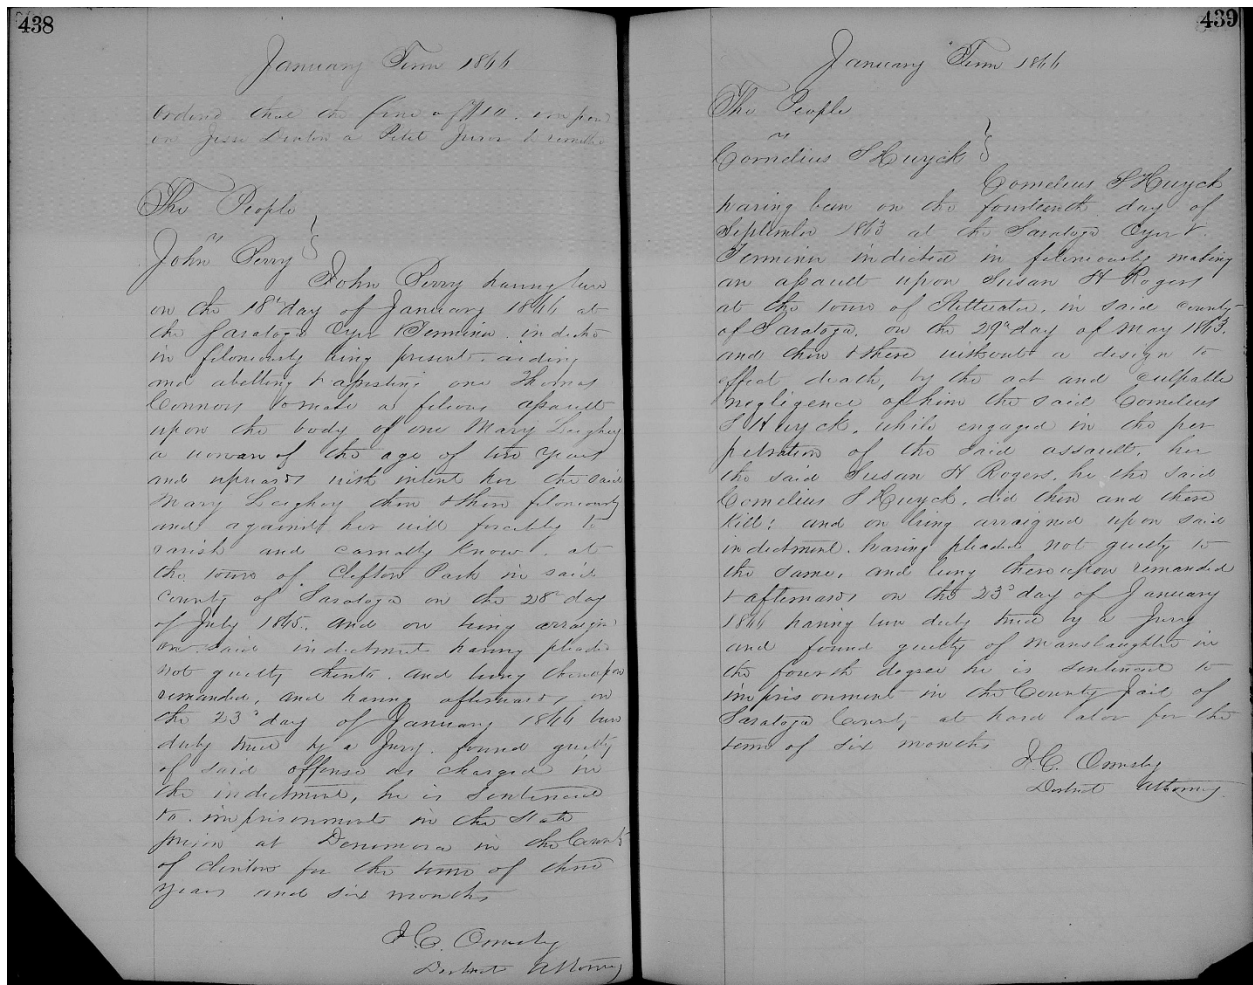 438
January Term 1866
Ordered that the fine of $10. imposed
on Jesse a Petit Juror be remitted
The People
vs
John Perry
John Perry having been
on the 18th day of January 1866 at
the Saratoga Oyer & Terminer indicted
in feloniously being present aiding
and abetting & assisting one Thomas
Connors to make a felious assault
upon the body of one Mary Leighey
a woman of the age of ten years
and upwards with intent her the said
Mary Leighey then & there feloniously
and against her will forcibly to
ravish and carnally know. at
the town of Clifton Park in said
county of Saratoga on the 28th day
of July 1865. and on being arraigned
on said indictment having pleaded
not guilty thereto. and being thereupon
remanded, and having afterwards on
the 23d day of January 1866 been
duly tried by a Jury. found guilty
of said offense as charged in
the indictment, he is Sentenced
to imprisonment in the State
prison at Dannemora in the County
of Clinton for the term of three
years and six months
J. C. Ormsby
District Attorney
439
January Term 1866
The People
vs
Cornelius S Huyck
Cornelius S Huyck
having been on the fourteenth day of
September 1863 at the Saratoga Oyer &
Terminer indicted in feloniously making
an assault upon Susan H Rogers
at the town of Stillwater, in said county
of Saratoga, on the 29th day of May 1863.
and then & there without a design to
effect death, by the act and culpable
negligence of him the said Cornelius
S Huyck, while engaged in the per
petration of the said assault, her
the said Susan H Rogers, he the said
Cornelius S Huyck, did then and there
kill; and on being arraigned upon said
indictment. having pleaded not guilty to
the same, and being thereupon remanded
& afterwards on the 23d day of January
1866 having been duly tried by a Jury
and found guilty of manslaughter in
the fourth degree he is sentenced to
imprisonment in the County Jail of
Saratoga County, at hard labor for the
term of six months
J. C. Ormsby
District Attorney